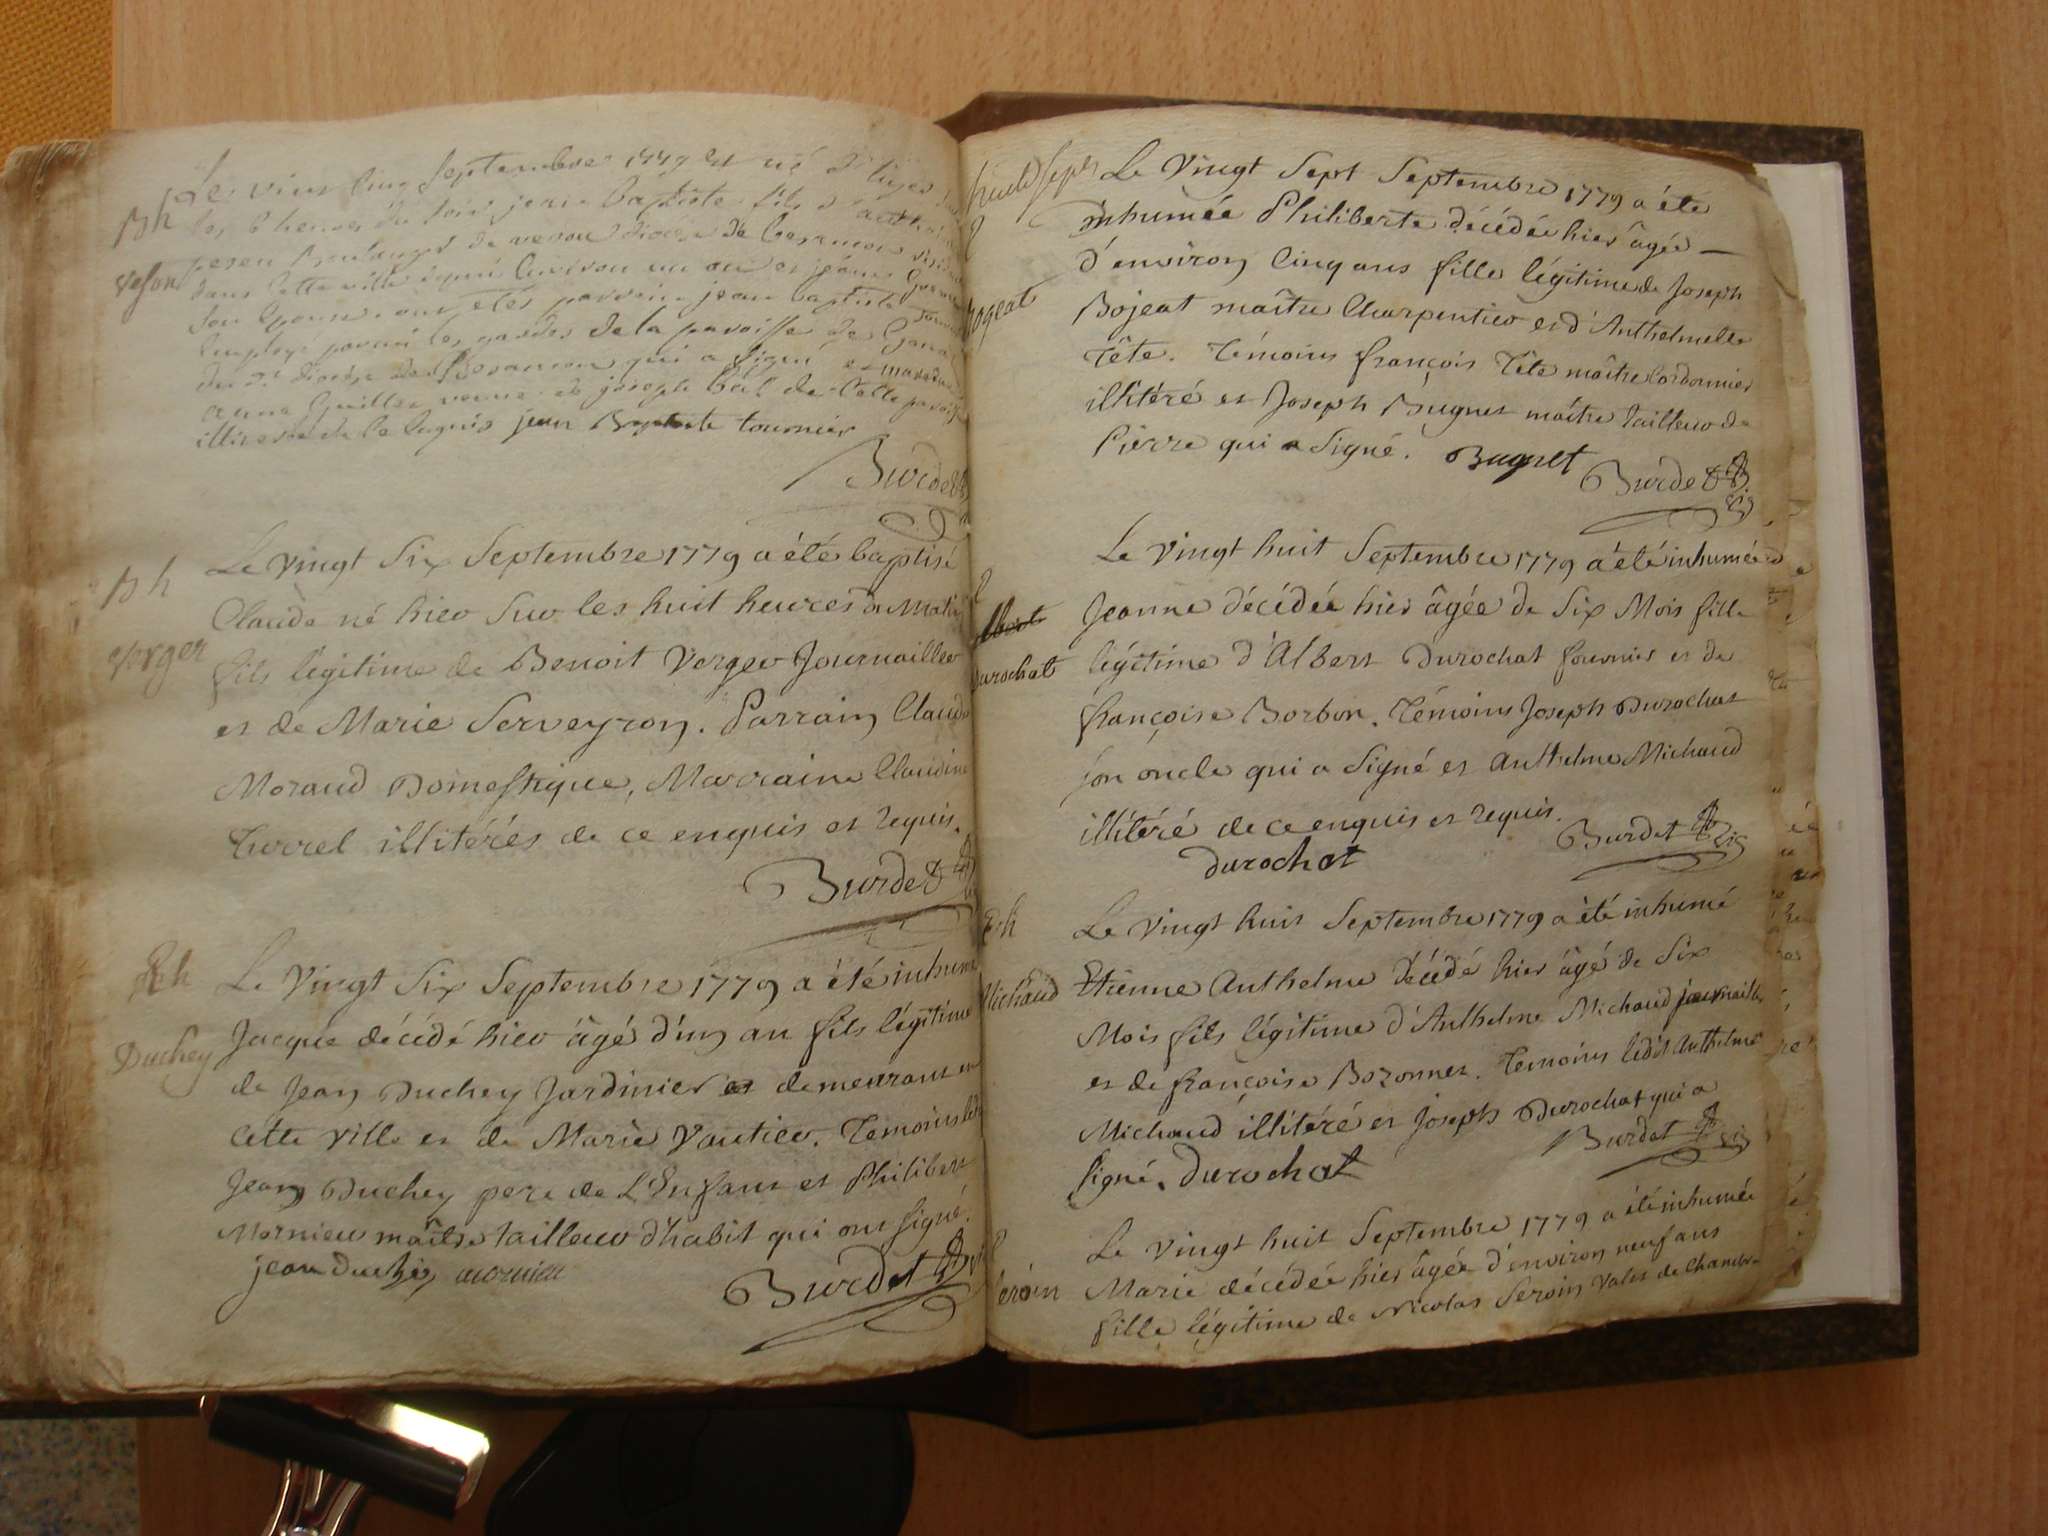 Bh
Le vint cinq Septembre 1779 est né
les 6 heures du soir jean baptiste fils
veson
dans cette ville environ un an et jeanne
son épouse. ont étés parrain jean baptiste
Employé parmi les gardes de la paroisse de
diocése de Besançon qui a signé et
anne veuve de joseph de cette
jean Baptiste tournier
Burdet
Bh
Le vingt Six Septembre 1779 a été baptisé
Claude né hier sur les huit heures du Matin
Vorger
fils légitime de Benoit Vorger Journaillier
et de Marie Serveyron. Parrain Claude
Moraud Domestique, Marraine Claudine
Turrel illitérés de ce enquis et requis.
Burdet
Sh
Le Vingt Six Septembre 1779 a été inhumé
Jacque décédé hier âgé d'un an fils légitime
Duchey
de Jean Duchey Jardinier et demeurant en
cette ville et de Marie Vautier. Temoins ledit
Jean Duchey pere de L'Enfant et Philibert
Mornieu maître tailleur d'habit qui ont signé.
jean Duchey mornieu
Burdet
Le Vingt Sept Septembre 1779 a été
inhumée Philiberte décédée hier âgée —
d'environ Cinq ans fille légitime de Joseph
Bojeat maître Charpentier et d'Anthelmette
Tête. Témoins françois Tête maître Cordonnier
illitéré et Joseph Bugnet maître tailleur de
Pierre qui a Signé. Bugnet
Burdet
Le Vingt huit Septembre 1779 a été inhumée
Jeanne décédée hier âgée de Six Mois fille
Durochat
légitime d'Albert Durochat fournier et de
françoise Borbon. Témoins Joseph Durochat
son oncle qui a signé et Anthelme Michaud
illitéré de ce enquis et requis.
Burdet
Durochat
Sh
Le Vingt huit Septembre 1779 a été inhumé
Michaud
Etienne Anthelme décédé hier âgé de Six
Mois fils légitime d'Anthelme Michaud journaillier
et de françoise Bozonnet. Temoins ledit Anthelme
Michaud illitéré et Joseph Durochat qui a
signé. Durochat
Burdet
Le Vingt huit Septembre 1779 a été inhumée
Marie décédée hier âgée d'environ neuf ans
fille légitime de Nicolas Seroin Valet de Chambre